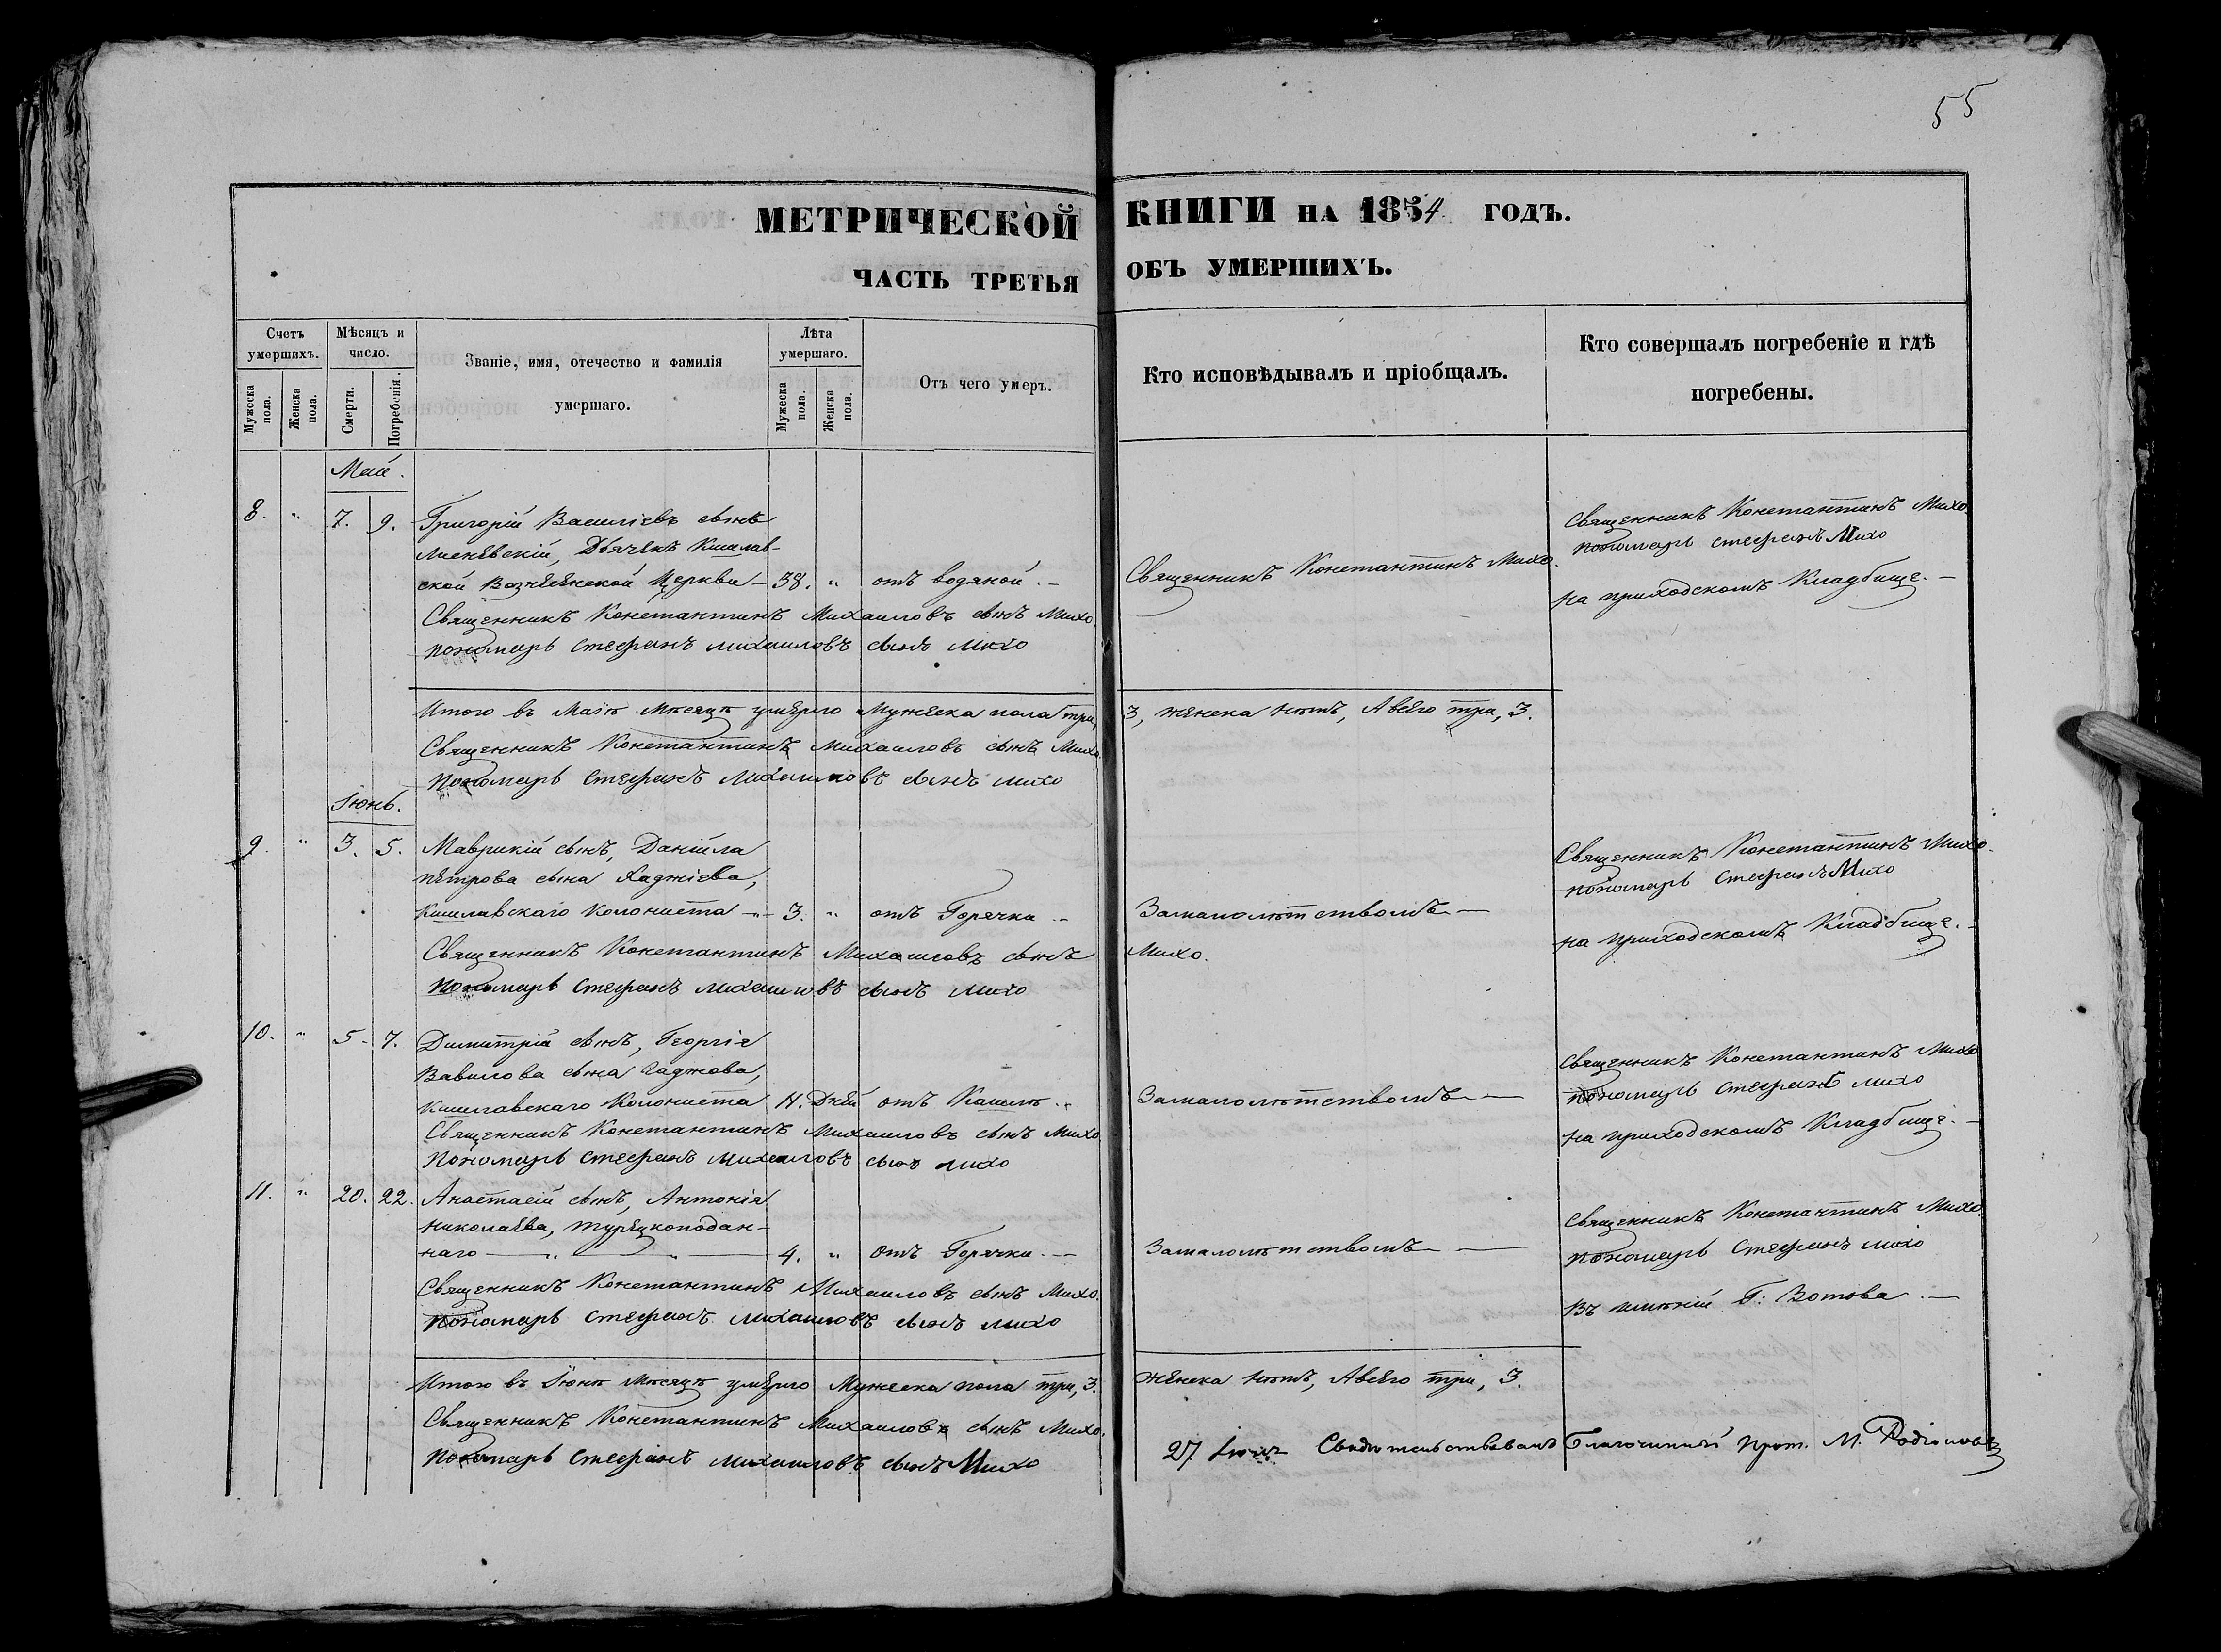 55
МЕТРИЧЕСКОЙ КНИГИ НА 1854 ГОДЪ.
ЧАСТЬ ТРЕТЬЯ ОБЪ УМЕРШИХЪ.
Счетъ умершихъ.
Мѣсяцъ и число.
Званіе, имя, отечество и фамилія умершаго.
Лѣта умершаго.
Отъ чего умеръ.
Кто исповѣдывалъ и пріобщалъ.
Кто совершалъ погребеніе и гдѣ погребены.
Мужеска пола.
Женска пола.
Смерти.
Погребенія.
Мужеска пола.
Женска пола.
Май.
8. " 7. 9. Григорій Василіевъ сынъ
Лисневскій, Дьячекъ Кишлав-
ской Вознесенской Церкви - 38. " отъ водяной. -
Священникъ Константинъ Михаиловъ сынъ Михо.
пономарь Стефанъ Михаиловъ сынъ Михо
Священникъ Константинъ Михо.
Священникъ Константинъ Михо.
пономарь Стефанъ Михо
на приходскомъ Кладбище. -
Итого въ Маіѣ Мѣсяцѣ умерло Мужеска пола три, 3, женска нѣтъ, А всего три, 3.
Священникъ Константинъ Михаиловъ сынъ Михо
Пономарь Стефанъ Михаиловъ сынъ Михо
Іюнь.
9. " 3. 5. Маврикій сынъ, Даніила
петрова сына Хаджіева,
Кишлавскаго колониста - 3. " отъ Горячки -
Священникъ Константинъ Михаиловъ сынъ Михо.
Пономарь Стефанъ Михаиловъ сынъ Михо
Замалолѣтствомъ -
Священникъ Константинъ Михо.
пономарь Стефанъ Михо
на приходскомъ Кладбище. -
10. " 5. 7. Димитрій сынъ, Георгія
Вавилова сына Гаджова,
Кишлавскаго Колониста 11. Дней отъ Кашлѣ.
Священникъ Константинъ Михаиловъ сынъ Михо
Пономарь Стефанъ Михаиловъ сынъ Михо
Замалолѣтствомъ -
Священникъ Константинъ Михо
пономарь Стефанъ Михо
на приходскомъ Кладбище. -
11. " 20. 22. Анастасій сынъ, Антонія
Николаева, турецкоподан-
наго - " - " - 4. " отъ Горячки. -
Священникъ Константинъ Михаиловъ сынъ Михо.
пономарь Стефанъ Михаиловъ сынъ Михо
Замалолѣтствомъ -
Священникъ Константинъ Михо.
пономарь Стефанъ Михо
Въ имѣніи Г: Вотова. -
Итого въ Іюнѣ Мѣсяцѣ умерло Мужеска пола три, 3. женска нѣтъ, А всего три, 3.
Священникъ Константинъ Михаиловъ сынъ Михо.
Пономарь Стефанъ Михаиловъ сынъ Михо
27 Свидѣтельствовалъ Благочинный прот. М. Родіоновъ